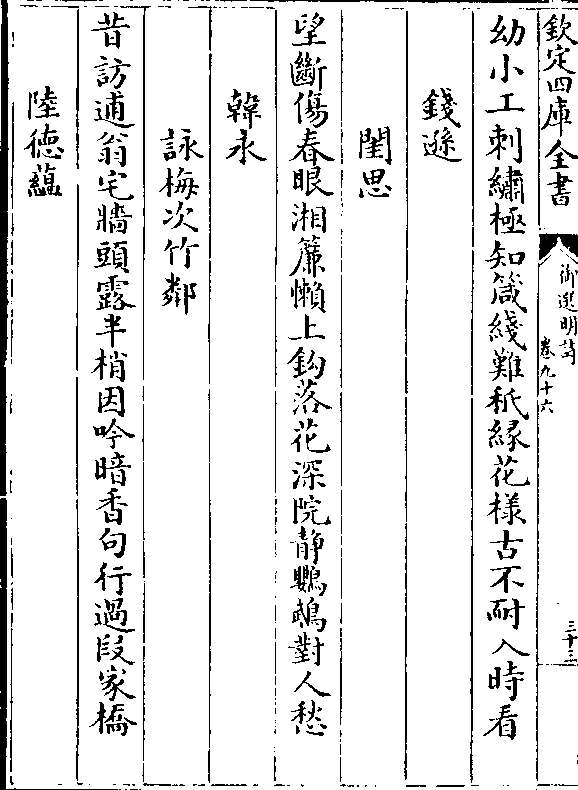 欽定四庫全書
御選明詩
卷九十六
三十三
幼小工刺繡極知箴綫難秖緣花様古不耐入時看
錢遜
閨思
望斷傷春眼湘簾懶上鈎落花深院静鸚鵡對人愁
韓永
詠梅次竹鄰
昔訪逋翁宅牆頭露半梢因吟暗香句行過段家橋
陸徳藴